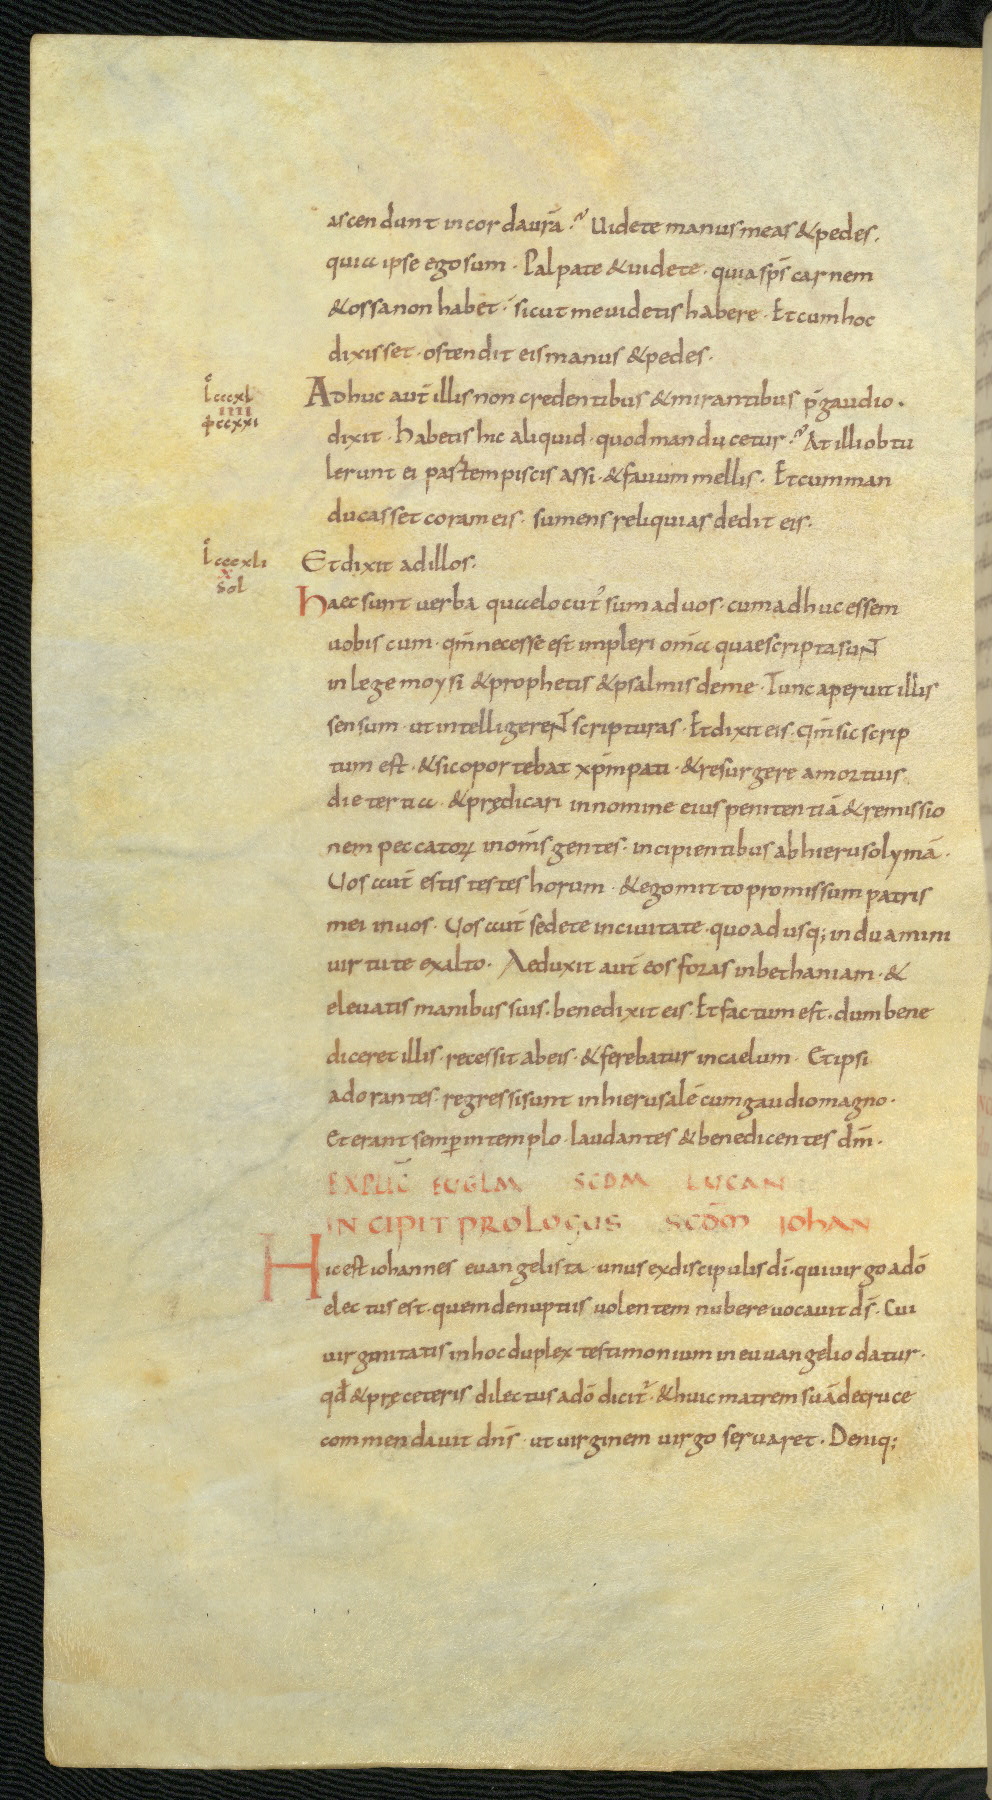 ascendunt incorda urā? Uidete manus meas &pedes.
quia ipse ego sum. Palpate &uidete. quia sp̄s carnem
&ossa non habet. sicut me uidetis habere. Et cum hoc
dixisset. ostendit eis manus &pedes.
L̄ cccxl
iiii
ccxxi
Adhuc aut̄ illis non credentibus &mirantibus p̄ gaudio.
dixit. habetis hic aliquid. quod manducetur? At illi obtu
lerunt ei partem piscis assi. &fauum mellis. Et cum man
ducasset coram eis. sumens reliquias dedit eis.
L̄ cccxli
x
sol
Et dixit ad illos.
Haec sunt uerba quae locut' sum ad uos. cum adhuc essem
uobis cum. qm̄ necesse est impleri om̄a quae scripta sunt
in lege moysi &prophetis &psalmis de me. Tunc aperuit illis
sensum. ut intelligerent scripturas. Et dixit eis. qm̄ sic scrip
tum est. &sic oportebat xp̄m pati. &resurgere a mortuis
die tertia. &prędicari in nomine eius penitentiā &remissio
nem peccatorꝝ in om̄s gentes. incipientibus ab hierusolymā.
Uos aut̄ estis testes horum. &ego mitto promissum patris
mei in uos. Uos aut̄ sedete in ciuitate. quo ad usq; induamini
uirtute ex alto. Aeduxit aut̄ eos foras in bethaniam. &
eleuatis manibus suis. benedixit eis. Et factum est. dum bene
diceret illis. recessit ab eis. &ferebatur in caelum. Et ipsi
adorantes. regressi sunt in hierusalē cum gaudio magno.
Et erant semp̄ in templo. laudantes &benedicentes dm̄.
EXPLIC̄ EUGLM SCDM LUCAN
INCIPIT PROLOGUS SCD̄M IOHAN
Hic est iohannes euangelista. unus ex discipulis dī. qui uirgo a dō
electus est. quem de nuptiis uolentem nubere uocauit ds̄. Cui
uirginitatis in hoc duplex testimonium in euuangelio datur.
qđ &pręceteris dilectus a dō dicit'. &huic matrem suā de cruce
commendauit dn̄s. ut uirginem uirgo seruaret. Deniq;